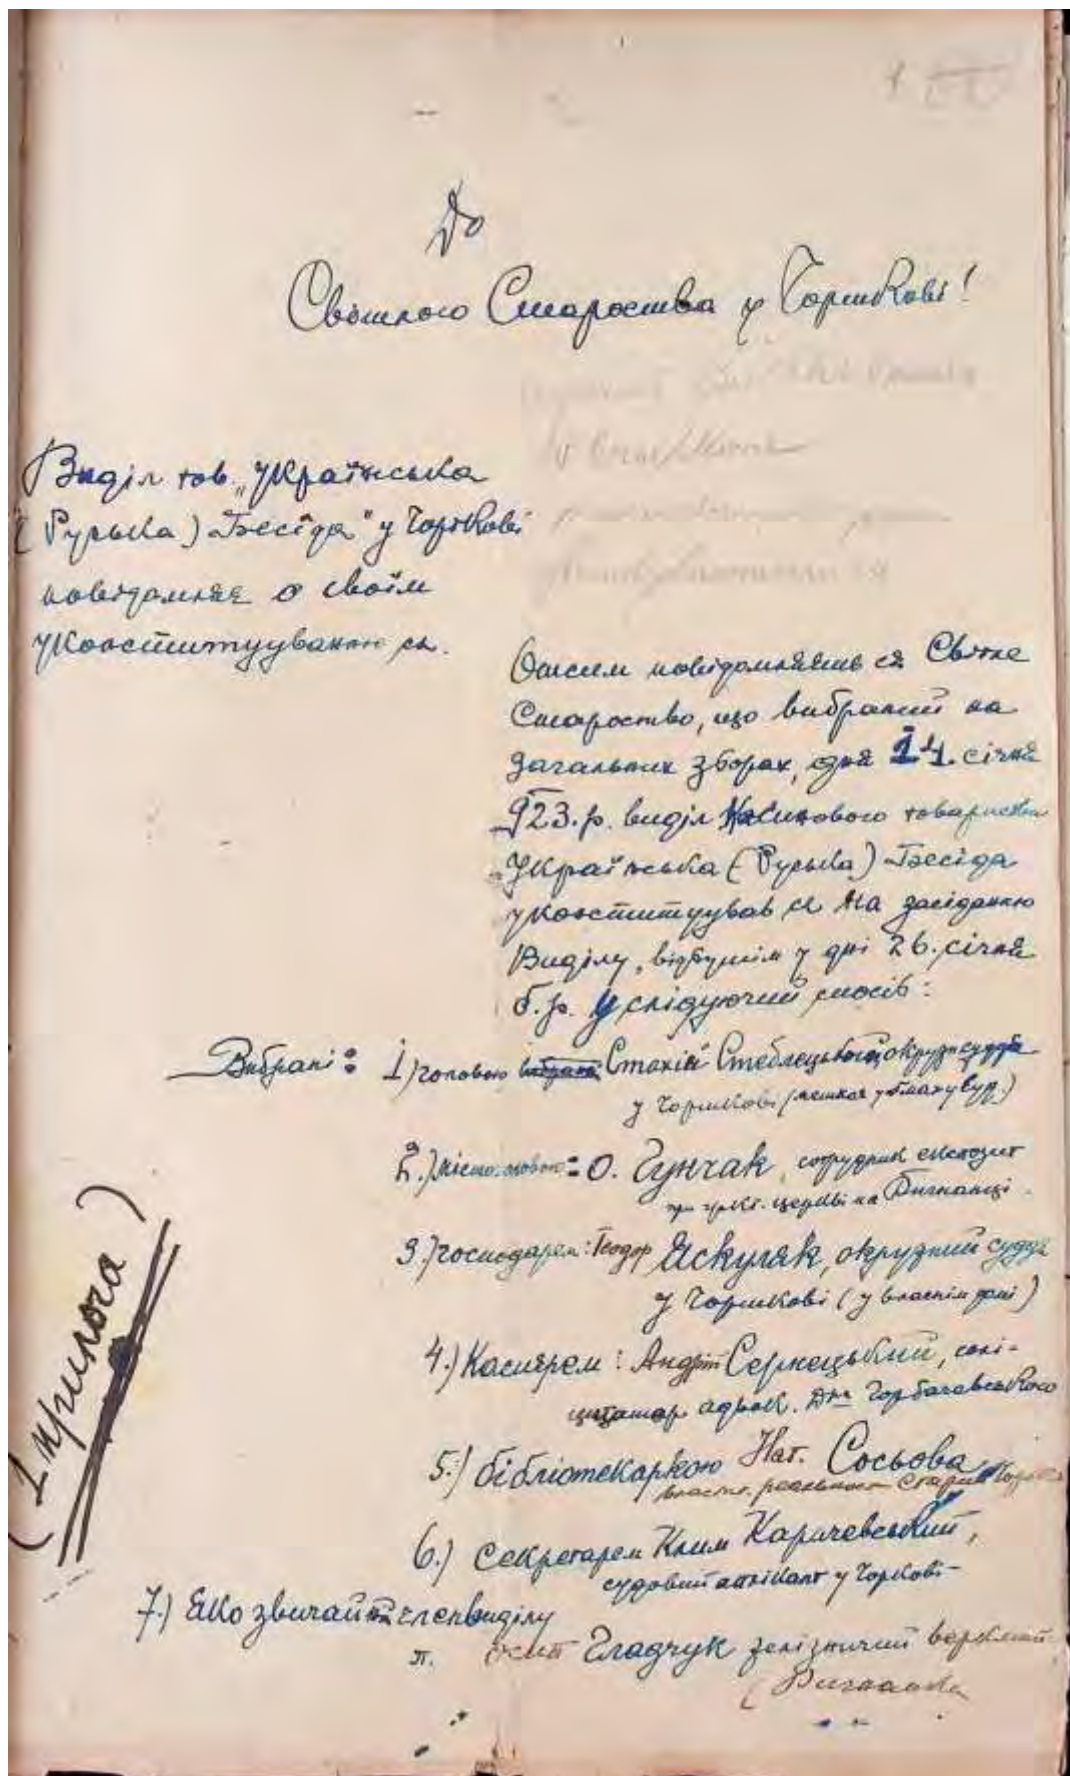 До
Світлого Староства у Чорткові!
Виділ тов. „Українська
(Руська) Бесїда" у Чорткові
повідомляє о своїм
уконституованню ся.
Отсим повідомляєть ся Світле
Староство, що вибраний на
загальних зборах, дня 14. січня
923. р. виділ Касинового товариства
„Українська (Руська) Бесїда
уконституував ся на засіданню
Виділу, відбутім у дні 26. січня
б.р. у слідуючий спосіб:
Вибрані: 1) головою Стахій Стеблецький окружн. суддя
у Чорткові (мешкає у бл
2.) містоголовою: О. Гунчак, сотрудник експозит
при гр. кт. церкві на Вигнанці
3.) господарем: Теодор Яскуляк, окружний суддя
у Чорткові (у власнім домі)
4.) Касиєрем: Андрій Сернецький, солі-
цитатор адвок. Дра Горбачевського
5.) бібліотекаркою Нат. Сосьова
власт. реальности Старий Чортків
6.) Секретарем Клим Карачевський,
судовий аплікант у Чорткові
7.) Яко звичайний член виділу
п. Осип Гладчук зелізничий
(Вигнанка
(1 прилога)